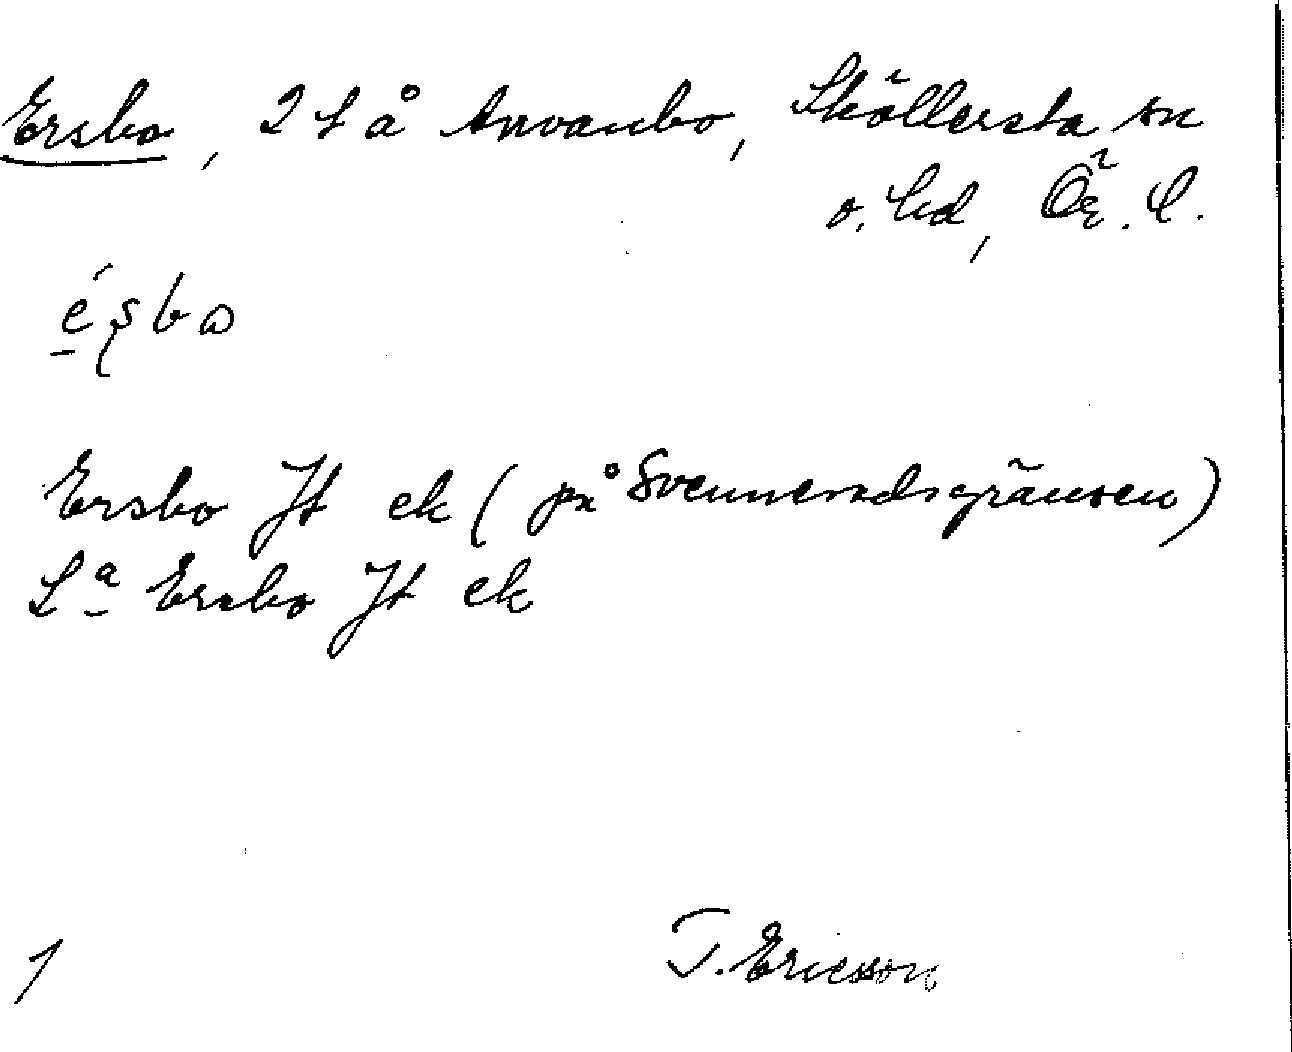 Ersbo, 2 t å Arvanbo, Sköllersta sn
o. hd, Ör. l.
Ersbo Jt ek (på Svennevadsgränsen)
La Ersbo Jt ek
1
T. Ericsson